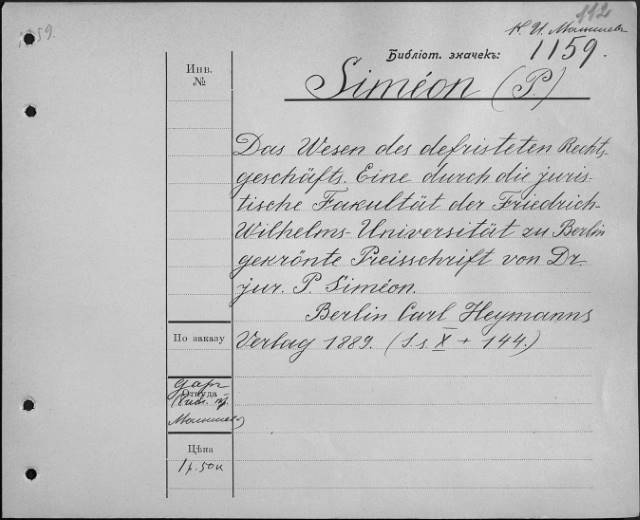 1159.
112
К. И. Малышев
Библіот. значекъ:
1159.
Siméon (P.)
Инв.
№
Das Wesen des defristeten Rechts-
geschäfts. Eine durch die juris-
tische Fakultät der Friedrich-
Wilhelms-Universität zu Berlin
gekrönte Preisschrift von Dr.
jur. P. Siméon.
Berlin Carl Heymanns
Verlag 1889. (S.s X + 144.)
По заказу
даръ
Откуда
Малышева
Цѣна
1 р. 50 к